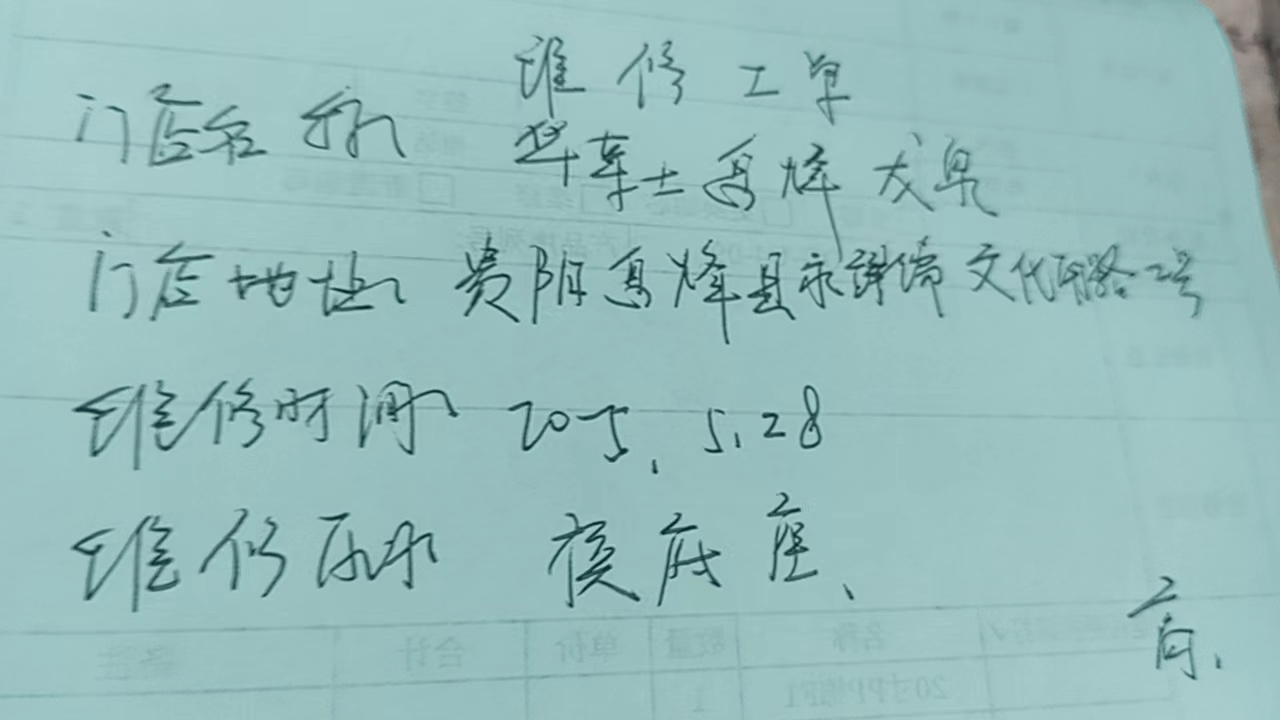 维修工单
门店名称 华莱士息烽龙泉
门店地址 贵阳息烽县永靖镇文化西路2号
维修时间 2025.5.28
维修需求 换底座、
商、